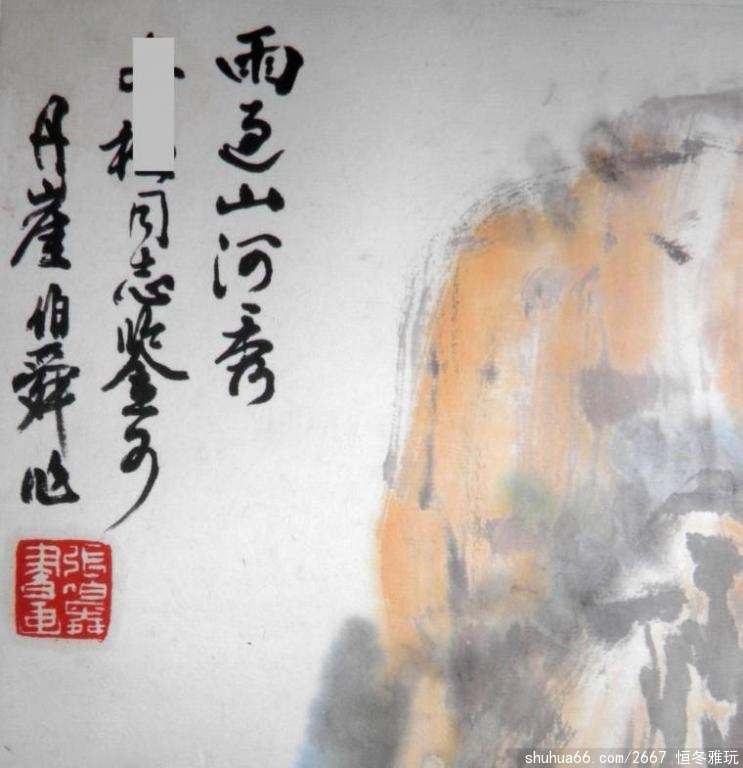 雨過山河秀
同志鉴可
丹崖伯舜作
張伯舜
書画
shuhua66.com/2667 恒冬雅玩